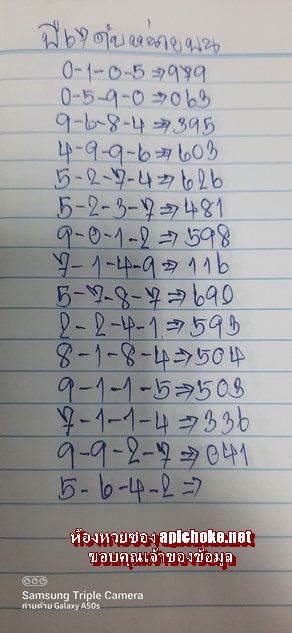 ปี67ดับหน่วยบน
0-1-0-5⇒979
0-5-9-0⇒063
9-6-8-4⇒395
4-9-9-6⇒603
5-2-7-4⇒626
5-2-3-7⇒481
9-0-1-2⇒598
7-1-4-9⇒116
5-7-8-7⇒690
2-2-4-1⇒593
8-1-8-4⇒504
9-1-1-5⇒503
7-1-1-4⇒336
9-9-2-7⇒041
5-6-4-2⇒
ห้องหวยซอง apichoke.net
ขอบคุณเจ้าของข้อมูล
Samsung Triple Camera
ถ่ายด้วย Galaxy A50s